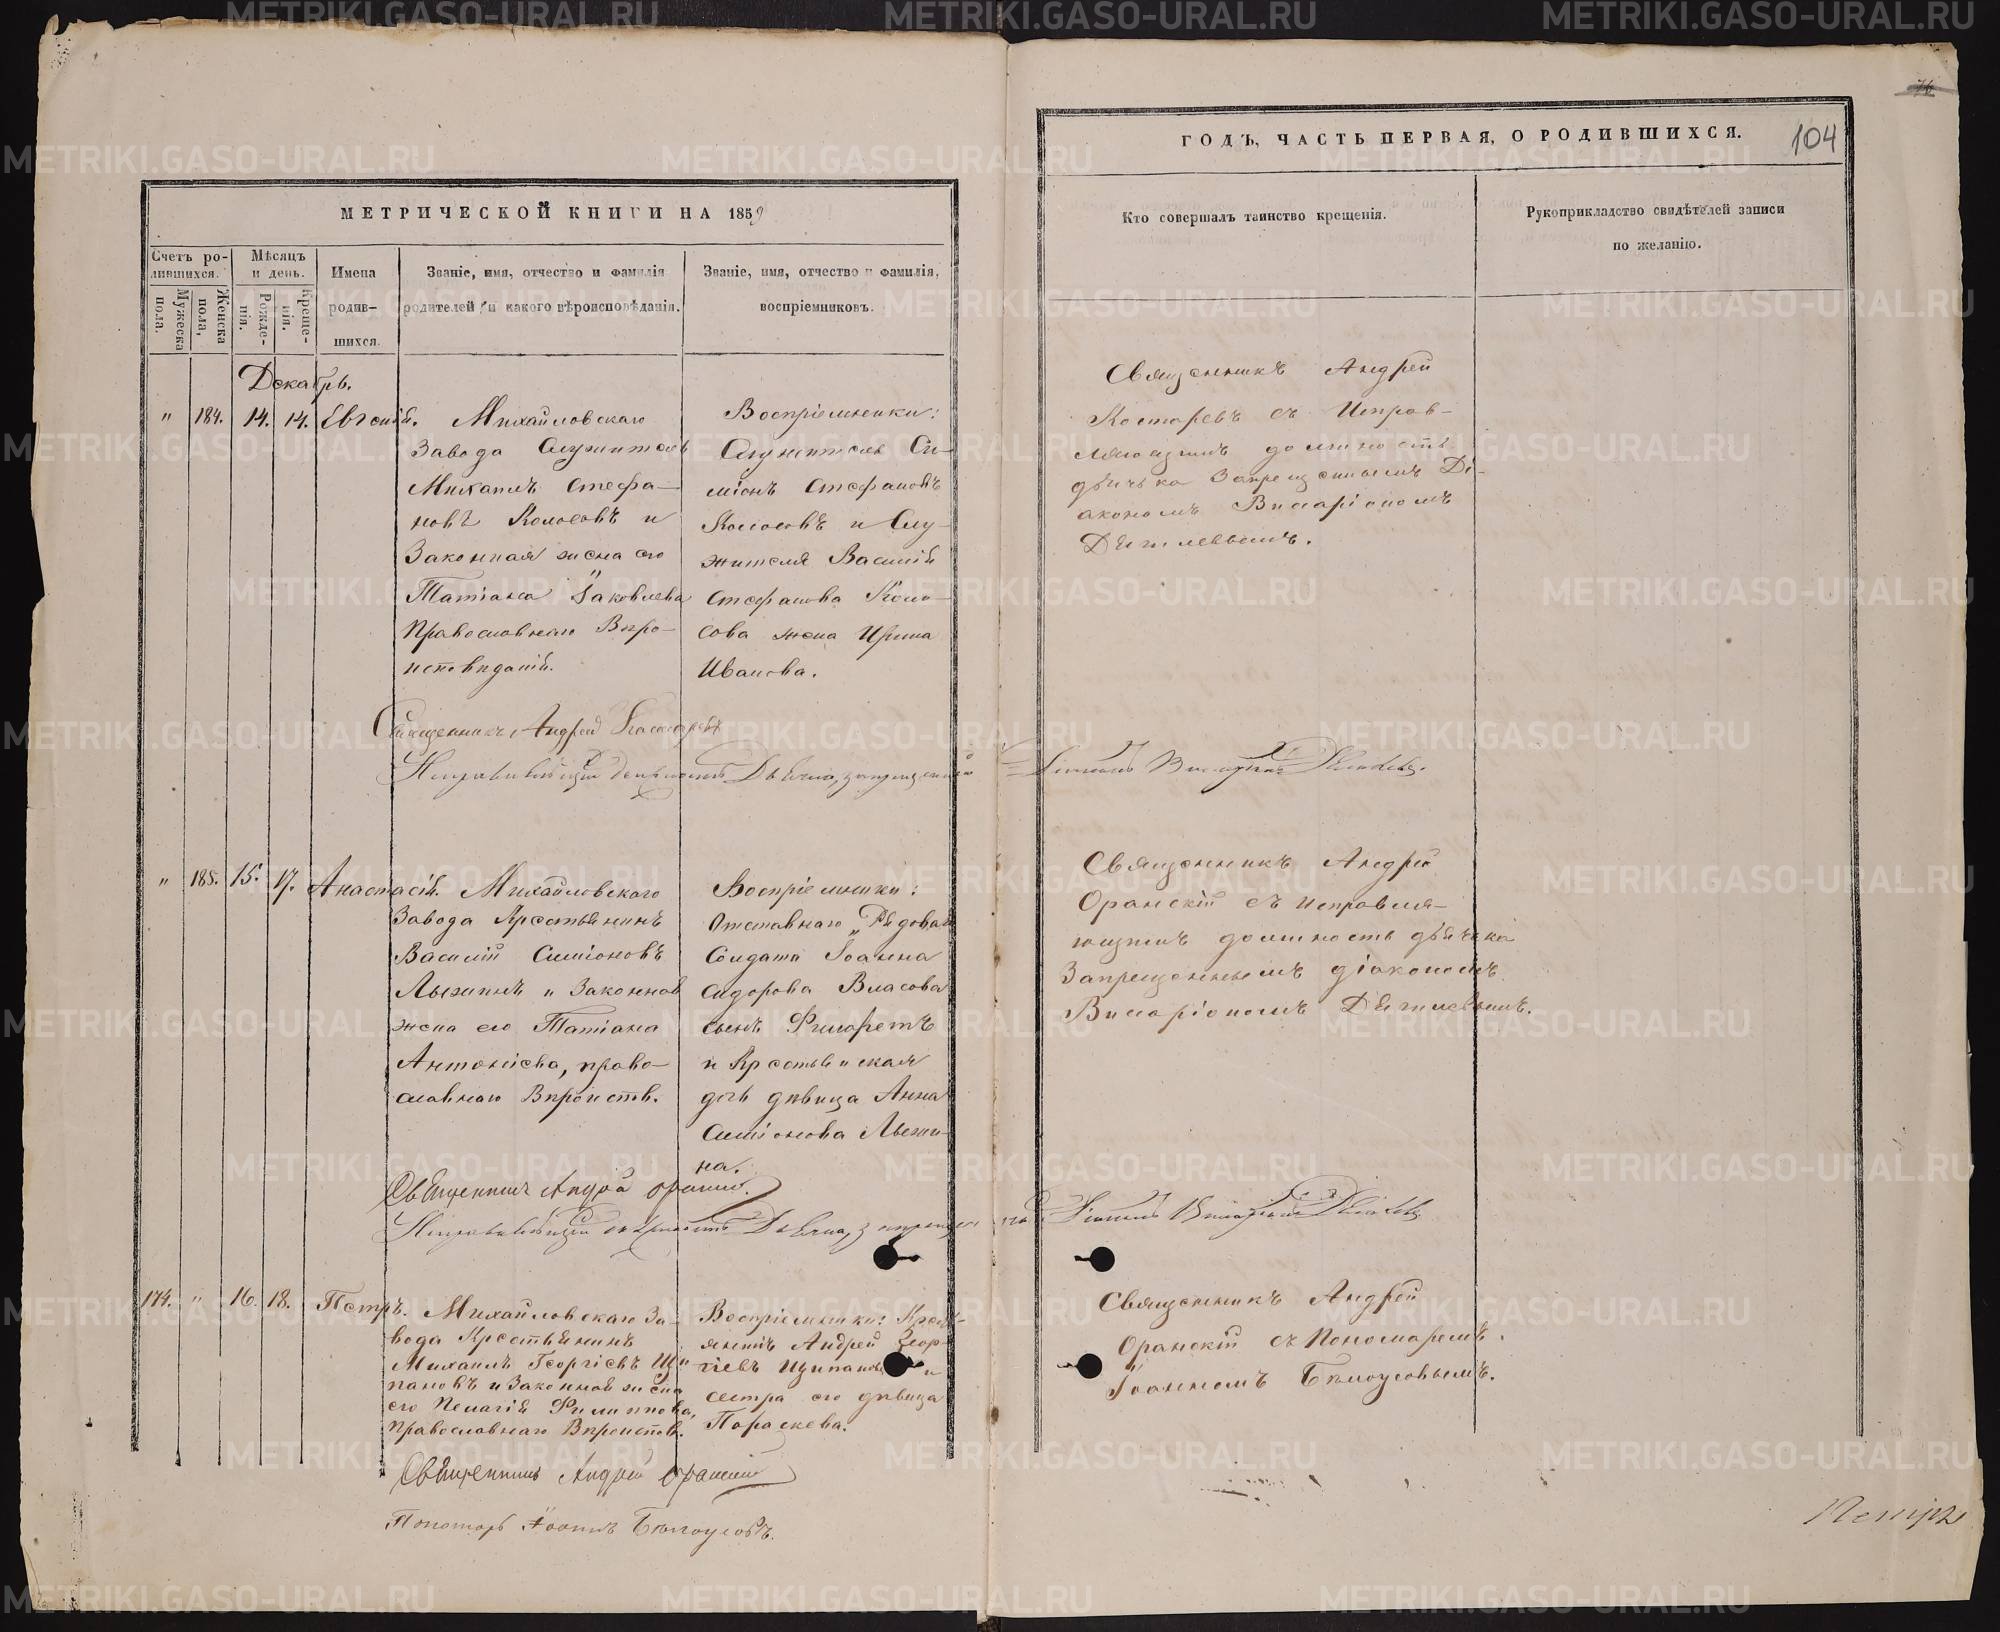 МЕТРИЧЕСКОЙ КНИГИ НА 1859
Счетъ родившихся.
Мужеска пола.
Женска пола,
Мѣсяцъ и день.
Рожденія.
Крещенія.
Имена родившихся.
Званіе, имя, отчество и фамилія
родителей, и какого вѣроисповѣданія.
Званіе, имя, отчество и фамилія,
воспріемниковъ.
Декабрь.
" 184. 14. 14. Евгенія.
Михайловскаго
Завода Служитель
Михаилъ Стефа-
новъ Колосовъ и
Законная жена его
Татіана Іаковлева
Православнаго Вѣро-
исповѣданія.
Воспріемники:
Служитель Си-
міонъ Стефановъ
Колосовъ и Слу-
жителя Василія
Стефанова Коло-
сова жена Ирина
Иванова.
Священникъ Андрей Костаревъ
Исправляющій должность Дьячка, запрещенный Діаконъ Виссаріонъ
" 185. 15. 17. Анастасія.
Михайловскаго
Завода Крестьянинъ
Василій Симіоновъ
Лыжинъ и Законная
жена его Татіана
Антоніева, право-
славнаго Вѣроисповѣд.
Воспріемники:
Отставнаго Рядоваго
Солдата Іоанна
Сидорова Власова
сынъ Филаретъ
и Крестьянская
дочь дѣвица Анна
Симіонова Лыжи-
на.
Священникъ Андрей Оранскій
Исправляющій должность Дьячка, запрещенный Діаконъ Виссаріонъ
174. " 16. 18. Петръ.
Михайловскаго За-
вода Крестьянинъ
Михаилъ Георгіевъ Щи-
пановъ и Законная жена
его Пелагія Филиппова,
Православнаго Вѣроисповѣд.
Воспріемники: Крест-
янинъ Андрей Геор-
гіевъ Щипановъ и
сестра его дѣвица
Параскева.
Священникъ Андрей Оранскій
Пономарь Іоаннъ Бѣлоусовъ.
ГОДЪ, ЧАСТЬ ПЕРВАЯ, О РОДИВШИХСЯ.
104
Кто совершалъ таинство крещенія.
Рукоприкладство свидѣтелей записи
по желанію.
Священникъ Андрей
Костаревъ съ Исправ-
ляющимъ должность
дьячка Запрещеннымъ Ді-
акономъ Виссаріономъ
Священникъ Андрей
Оранскій съ исправля-
ющимъ должность дьячка
Запрещеннымъ діакономъ
Виссаріономъ
Священникъ Андрей
Оранскій съ Пономаремъ
Іоанномъ Бѣлоусовымъ.
METRIKI.GASO-URAL.RU